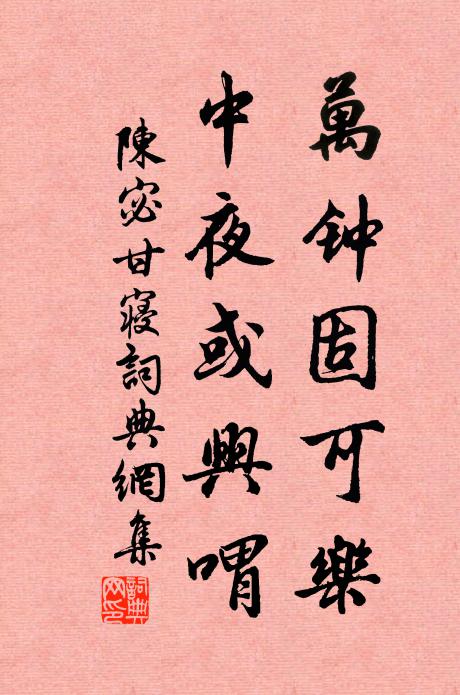 萬钟固可樂
中夜或興喟
陳宓甘寢詞典網集
詞典网印